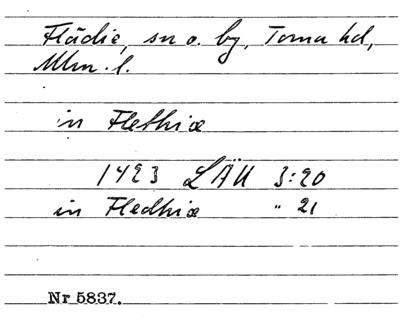 Flädie, sn o. by, Torna hd,
Mlm. l.
in Flethiæ
1423 LÄU 3:20
in Fledhiæ " 21
Nr 5837.